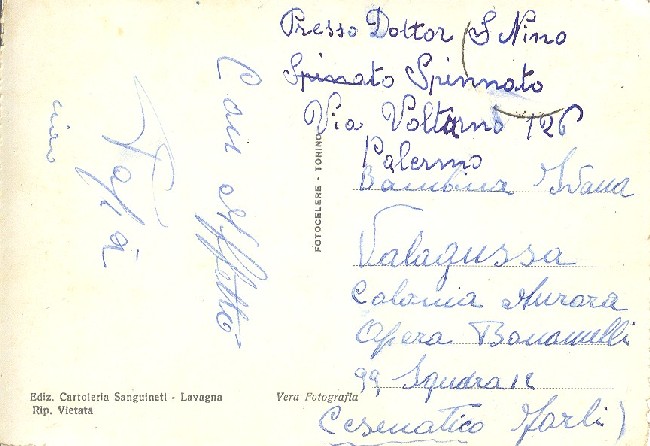 Presso Dottor S Nino
Spinnato Spinnato
Via Volturno 126
Palermo
Bambina Ivana
Valagussa
Colonia Aurora
Opera Bonomelli
99 Squadra
Cesenatico Forlì)
Con Affetto
Papà
ciao
FOTOCELERE - TORINO
Ediz. Cartoleria Sanguineti - Lavagna
Rip. Vietata
Vera Fotografia